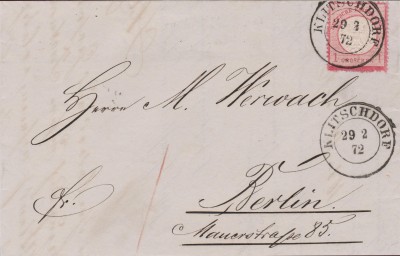 KLITSCHDORF
29 2
72
Herrn M. Werwach
KLITSCHDORF
29 2
72
Fr.
Berlin.
Mauerstraße 85.